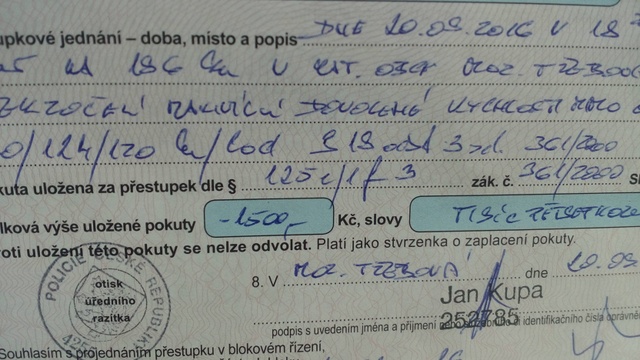 upkové jednání – doba, místo a popis DNE 20.09.2016 V 18
NA 186 km V KAT. OBCI MOR. TŘEBOV
EKROČENÍ MAXIMÁLNÍ DOVOLENÉ RYCHLOSTI MIMO
0/124/120 km/hod § 18 odst 3 zá. 361/2000
kuta uložena za přestupek dle § 125c/1f3 zák. č. 361/2000 S
lková výše uložené pokuty -1500,- Kč, slovy TISÍC PĚTSET
roti uložení této pokuty se nelze odvolat. Platí jako stvrzenka o zaplacení pokuty.
POLICIE ČESKÉ REPUBLIKY
otisk
úředního
razítka
8. V MOR. TŘEBOVÁ dne 20.09.
Jan Kupa
252785
podpis s uvedením jména a příjmení nebo identifikačního čísla oprávně
Souhlasím s projednáním přestupku v blokovém řízení,